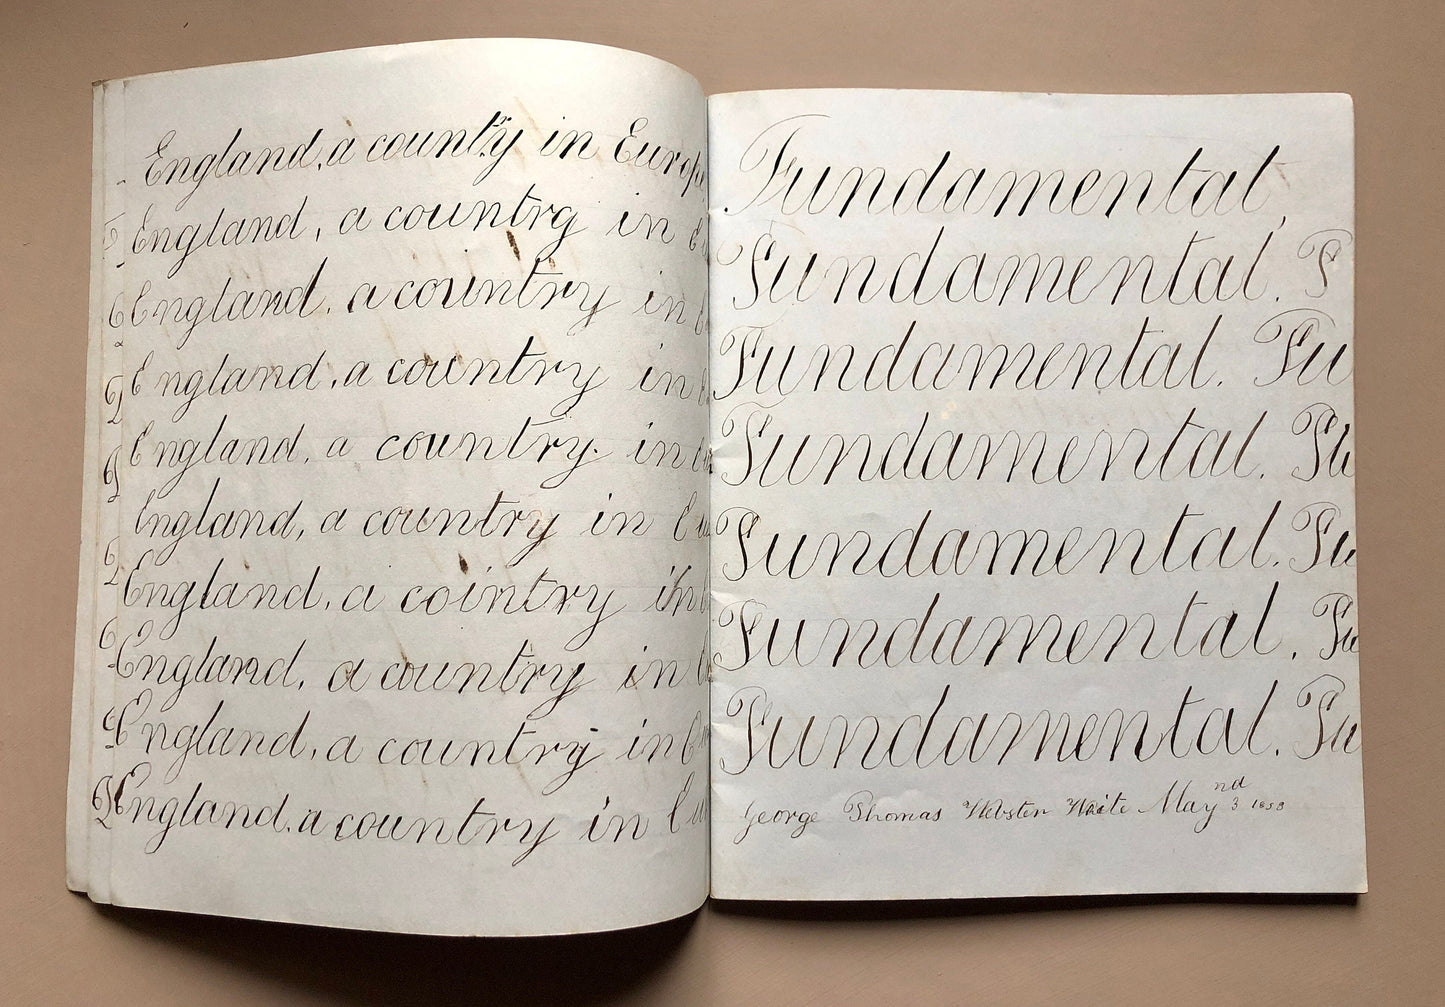 England, a country in Europe
England, a country in E
England, a country in E
England, a country in E
England, a country. in Eu
England, a country in Eu
England, a cointry in E
England, a country in E
England, a country in Eu
England, a country in Eu
Fundamental,
Fundamental. F
Fundamental. Fu
Fundamental. Fu
Fundamental. Fu
Fundamental. Fu
Fundamental. Fu
George Thomas Webster Waite May 3nd 1858